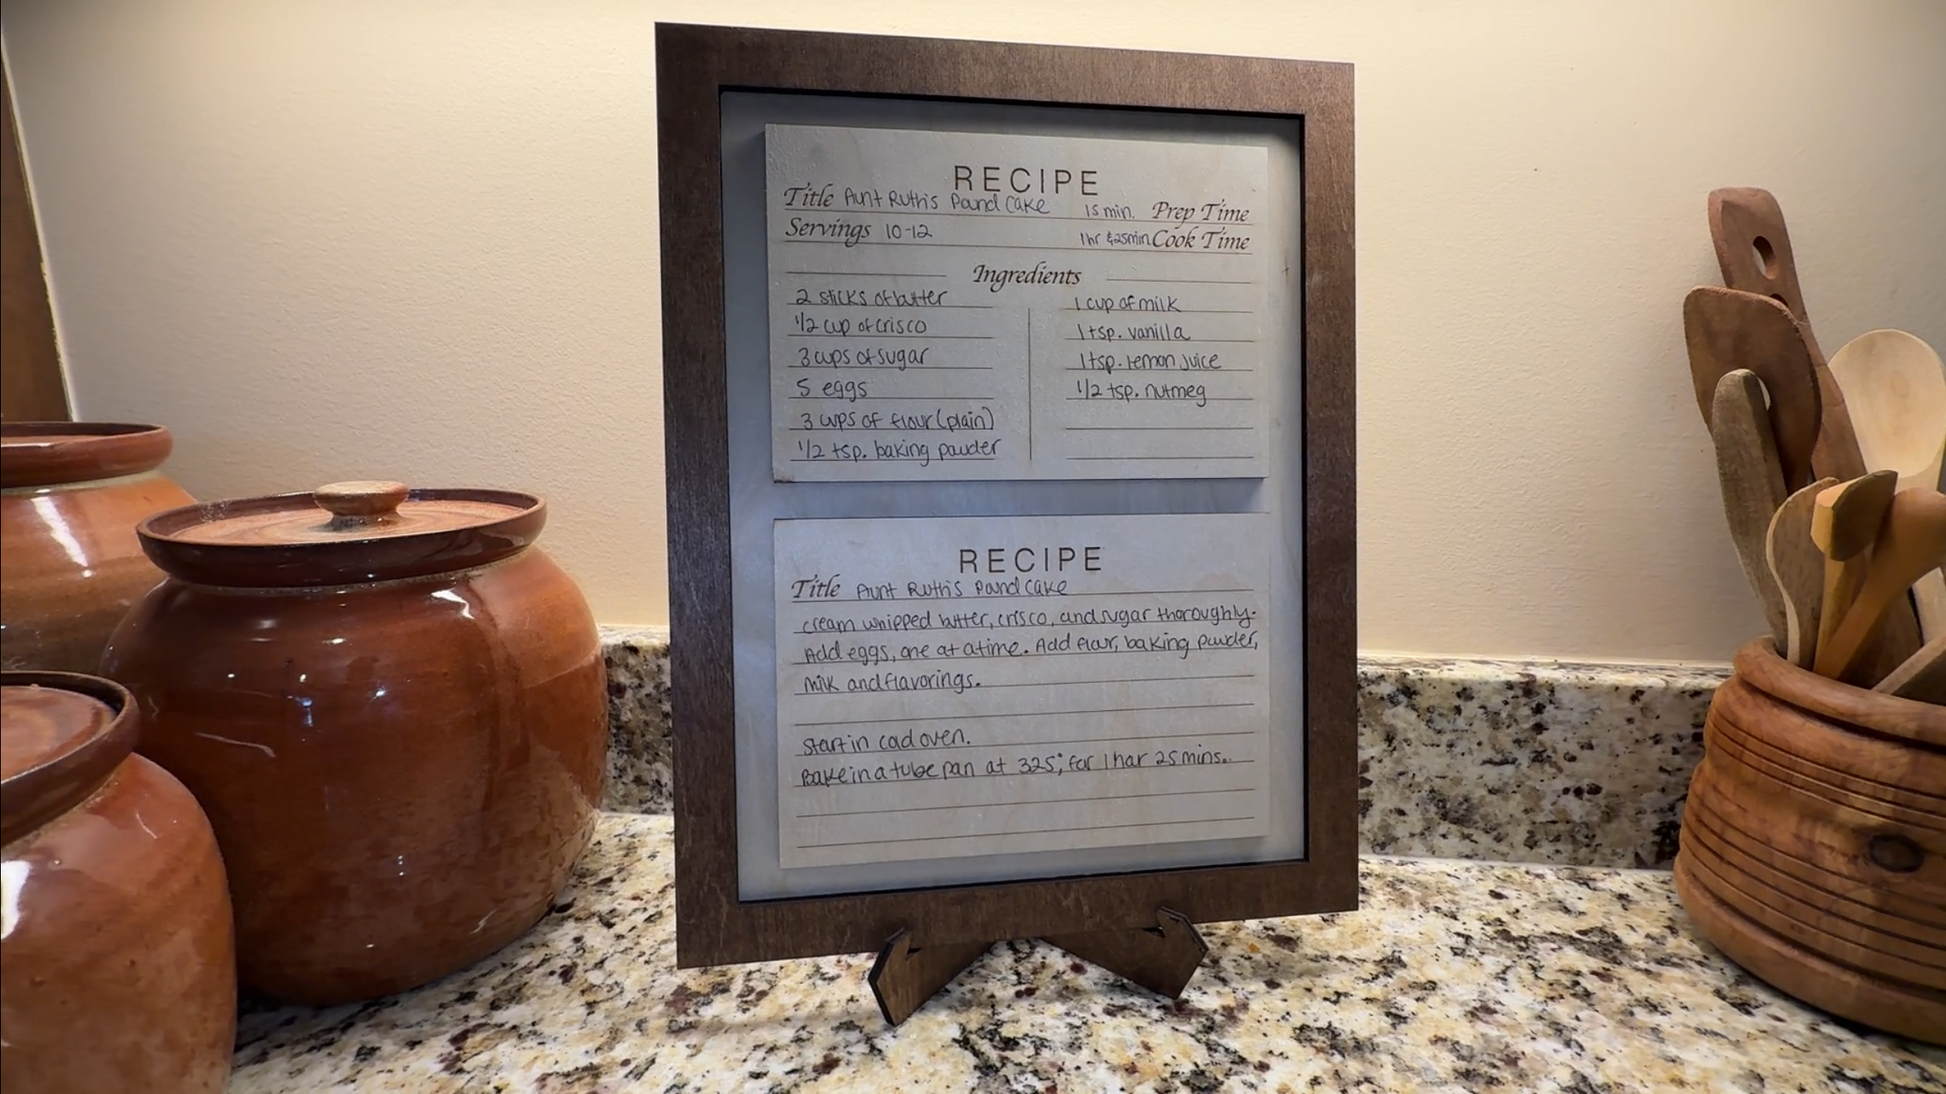 RECIPE
Title Aunt Ruth's Pound Cake 15 min. Prep Time
Servings 10-12 1hr & 25min Cook Time
Ingredients
2 sticks of butter
1/2 cup of crisco
3 cups of sugar
5 eggs
3 cups of flour (plain)
1/2 tsp. baking powder
1 cup of milk
1 tsp. vanilla
1 tsp. lemon juice
1/2 tsp. nutmeg
RECIPE
Title Aunt Ruth's Pound Cake
cream whipped butter, crisco, and sugar thoroughly.
Add eggs, one at a time. Add flour, baking powder,
milk and flavorings.
Start in cold oven.
Bake in a tube pan at 325° for 1 hour 25 mins.